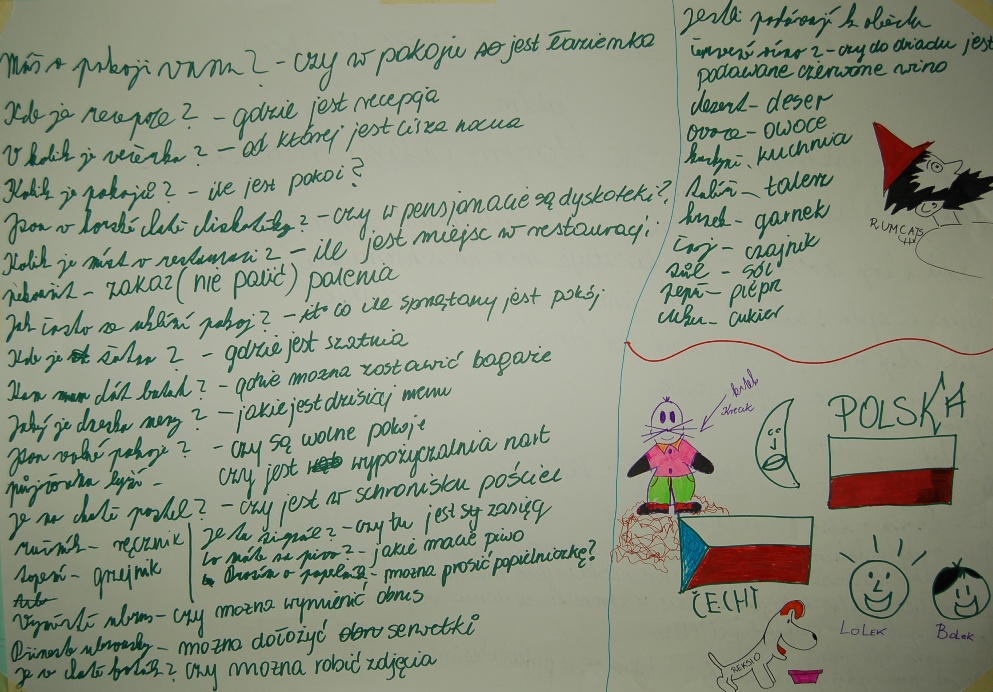 Máš v pokoji vanu? - czy w pokoju jest łazienka
Kde je recepce? - gdzie jest recepcja
V kolik je večerka? - od której jest cisza nocna
Kolik je pokojů? - ile jest pokoi?
Jsou v horské chatě diskotéky? - czy w pensjonacie są dyskoteki?
Kolik je míst v restauraci? - ile jest miejsc w restauracji
nekouřit - zakaz (nie palić) palenia
Jak často se uklízí pokoj? - co ile sprzątany jest pokój
Kde je šatna? - gdzie jest szatnia
Kam dát batoh? - gdzie można zostawić bagaże
Jaký je dneska meny? - jakie jest dzisiej menu
Jsou volné pokoje? - czy są wolne pokoje
půjčovna lyží - czy jest wypożyczalnia nart
Je na chatě postel? - czy jest w schronisku pościel
ručník - ręcznik
topení - grzejnik
Je tu signál? - czy tu jest zasięg
Co máte na pivo? - jakie macie piwo
Prosím o popelník - można prosić popielniczkę?
ubrus - czy można wymienić obrus
ubrousky - można dołożyć serwetki
Je v chatě? czy można robić zdjęcia
Jestli podávají k obědu
červené víno? - czy do obiadu jest
podawane czerwone wino
dezert - deser
ovoce - owoce
kuchyň - kuchnia
talíř - talerz
hrnek - garnek
čaj - czajnik
sůl - sól
pepř - pieprz
cukr - cukier
RUMCAJS
Krecik
POLSKA
ČECHY
LOLEK
Bolek
REKSIO